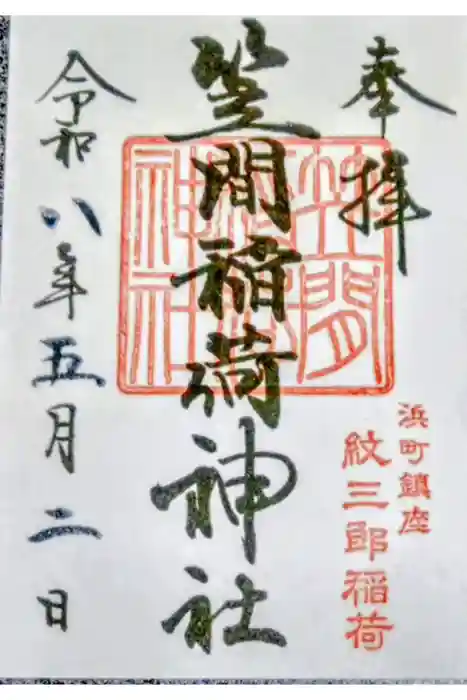 奉拝
笠間稲荷神社
笠間稲荷神社
浜町鎮座
紋三郎稲荷
令和八年五月二日